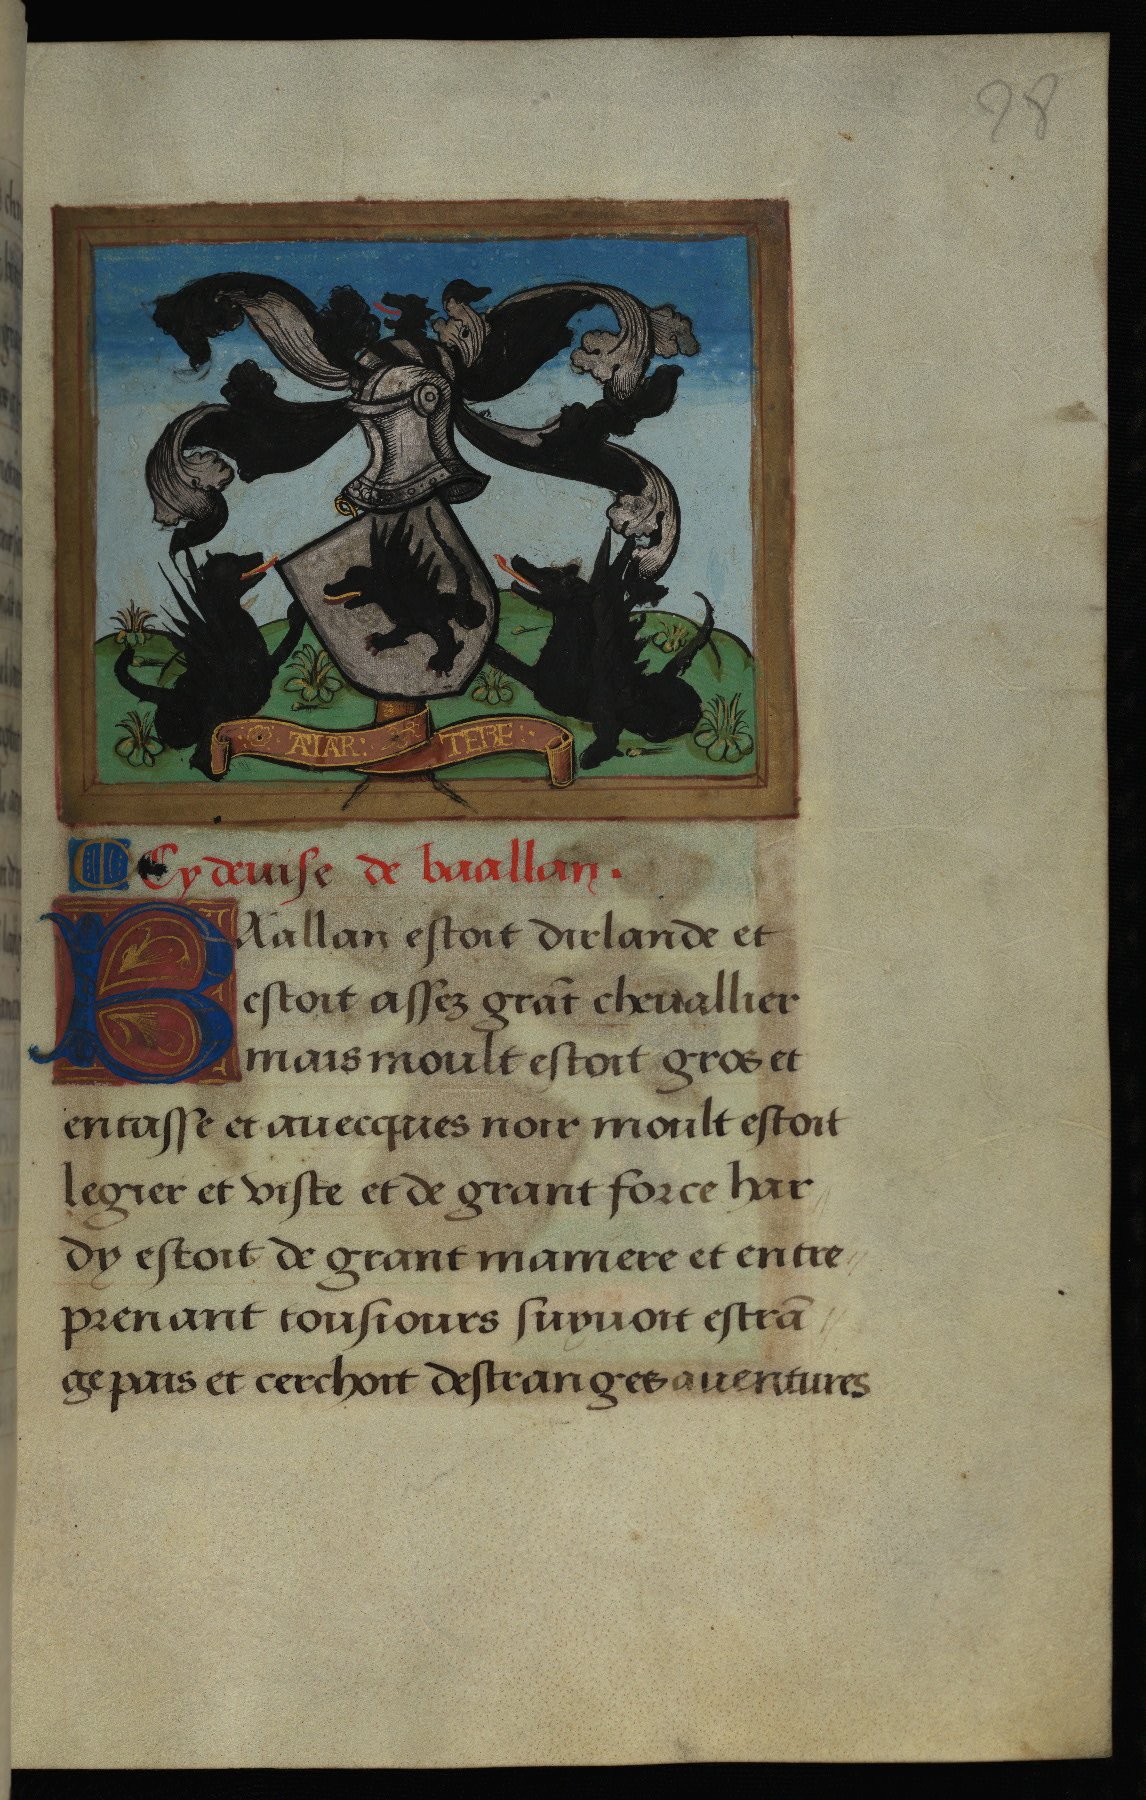 98
AIAR: TERE:
Cy deuise de baallan.
BAallan estoit dirlande et
estoit assez grāt cheuallier
mais moult estoit gros et
entasse et auecques noir moult estoit
legier et viste et de grant force har
dy estoit de grant maniere et entre
prenant tousiours suyuoit estrā
ge pais et cerchoit destranges auentures